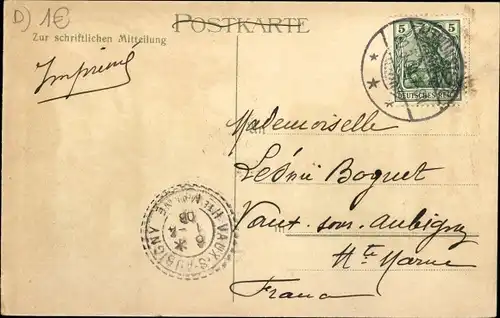 D) 1€
POSTKARTE
Zur schriftlichen Mitteilung
Imprimé
5 5
DEUTSCHES REICH
An
Mademoiselle
Boquet
Vaux-sous-Aubigny
Hte Marne
France
VAUX-S-AUBIGNY
HTE MARNE
08